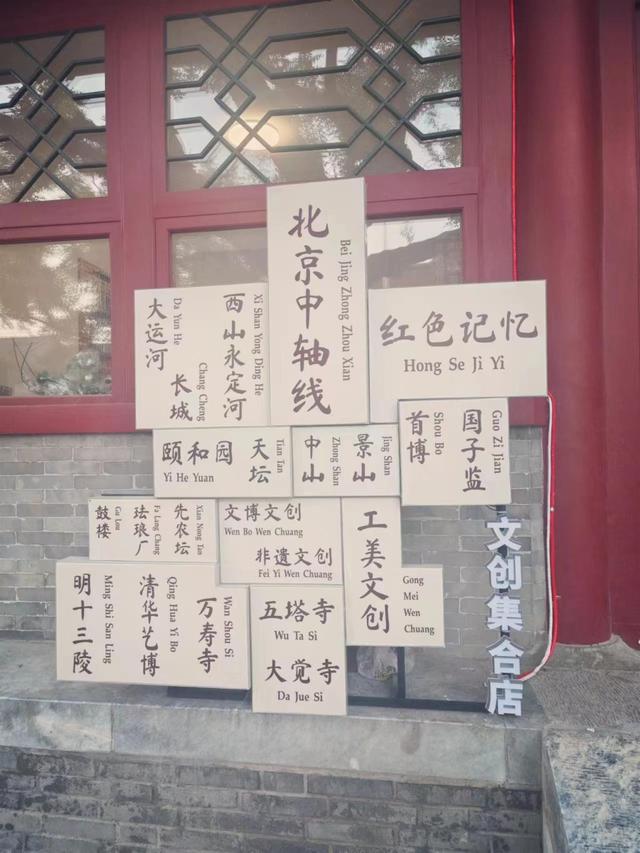 北京中轴线
Bei Jing Zhong Zhou Xian
大运河
Da Yun He
长城
Chang Cheng
西山永定河
Xi Shan Yong Ding He
红色记忆
Hong Se Ji Yi
颐和园
Yi He Yuan
天坛
Tian Tan
中山
Zhong Shan
景山
Jing Shan
首博
Shou Bo
国子监
Guo Zi Jian
鼓楼
Gu Lou
珐琅厂
Fa Lang Chang
先农坛
Xian Nong Tan
文博文创
Wen Bo Wen Chuang
非遗文创
Fei Yi Wen Chuang
工美文创
Gong
Mei
Wen
Chuang
明十三陵
Ming Shi San Ling
清华艺博
Qing Hua Yi Bo
万寿寺
Wan Shou Si
五塔寺
Wu Ta Si
大觉寺
Da Jue Si
文创集合店